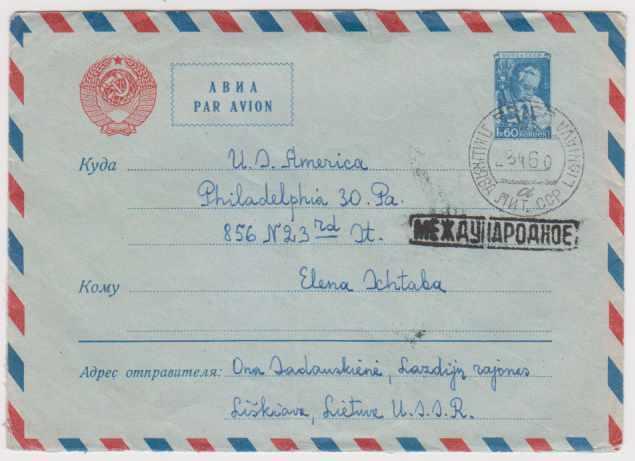 АВИА
PAR AVION
60 КОПЕЕК
-3 4 6 0
ЛИТ. ССР
Куда
U. S. America
Philadelphia 30. Pa.
856 N 23rd St.
МЕЖДУНАРОДНОЕ
Кому
Elena Schtaba
Адрес отправителя: Ona Sadauskienė, Lazdijų rajones
Liškiava, Lietuva U.S.S.R.